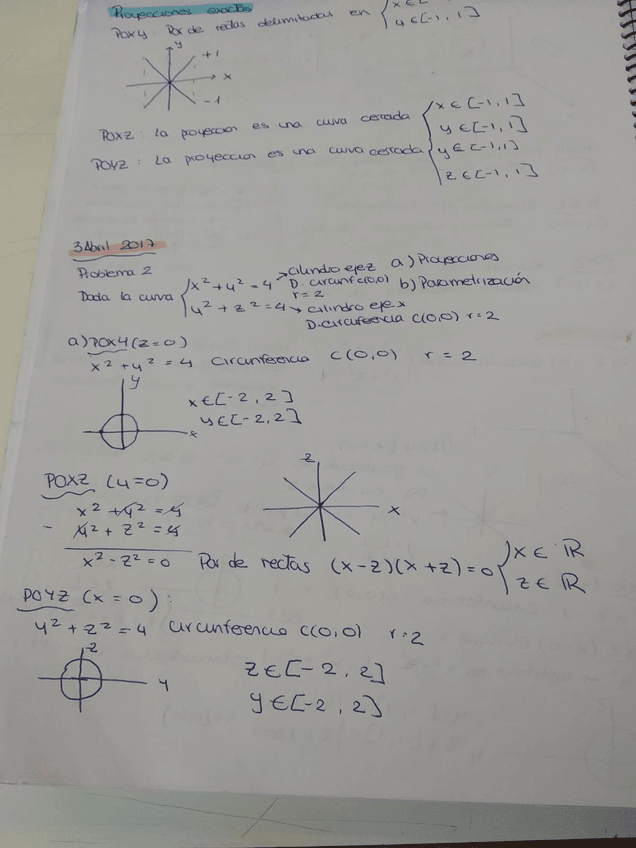 Proyecciones exactas
POXY: Par de rectas delimitadas en { x ∈ [
y ∈ [-1, 1]
y
+1
x
-1
POXZ: La proyeccion es una curva cerrada { x ∈ [-1, 1]
y ∈ [-1, 1]
POYZ: La proyeccion es una curva cerrada { y ∈ [-1, 1]
z ∈ [-1, 1]
3 Abril 2017
Problema 2
Dada la curva { x² + y² = 4 → cilindro eje z
D. circunf c(0,0)
r = 2
y² + z² = 4 → cilindro eje x
D. circuferencia C(0,0) r = 2
a) Proyecciones
b) Parametrización
a) POXY (z=0)
x² + y² = 4 circunferencia C(0,0) r = 2
y
x
x ∈ [-2, 2]
y ∈ [-2, 2]
POXZ (y=0)
x² + y² = 4
- y² + z² = 4
x² - z² = 0 Par de rectas (x-z)(x+z) = 0 { x ∈ ℝ
z ∈ ℝ
z
x
POYZ (x=0):
y² + z² = 4 circunferencia C(0,0) r=2
z
y
z ∈ [-2, 2]
y ∈ [-2, 2]